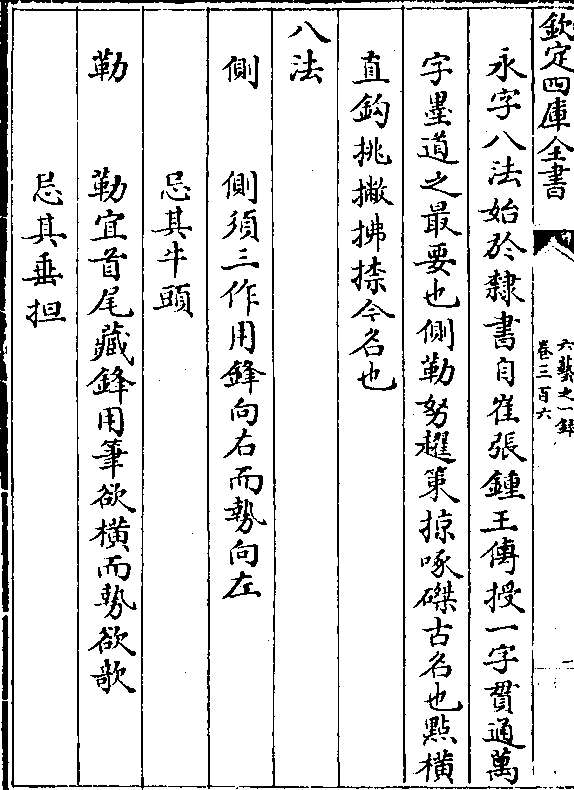 欽定四庫全書
六藝之一錄
卷三百六
永字八法始於隸書自崔張鍾王傳授一字貫通萬
字墨道之最要也側勒努趯策掠啄磔古名也點橫
直鈎挑撇拂捺今名也
八法
側　側須三作用鋒向右而勢向左
忌其牛頭
勒　勒宜首尾藏鋒用筆欲橫而勢欲歌
忌其垂担